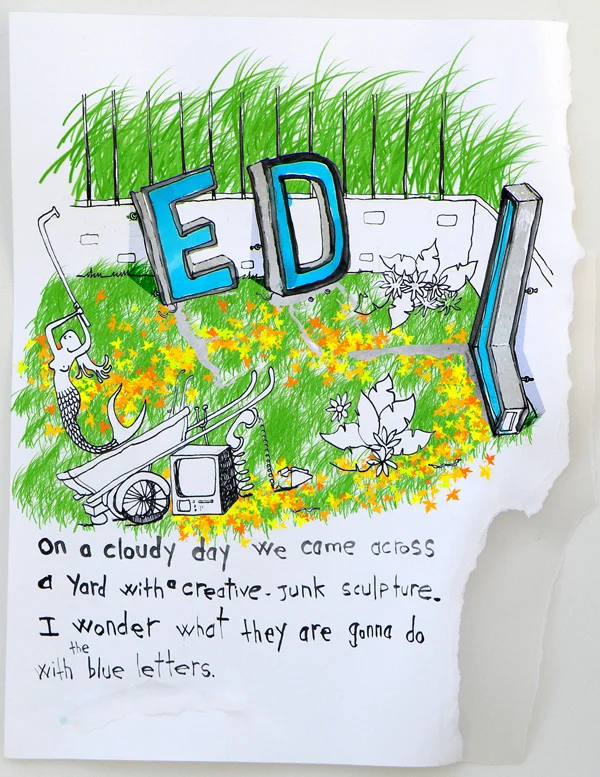 ED
On a cloudy day we came across
a Yard with a creative-junk sculpture.
I wonder what they are gonna do
with the blue letters.